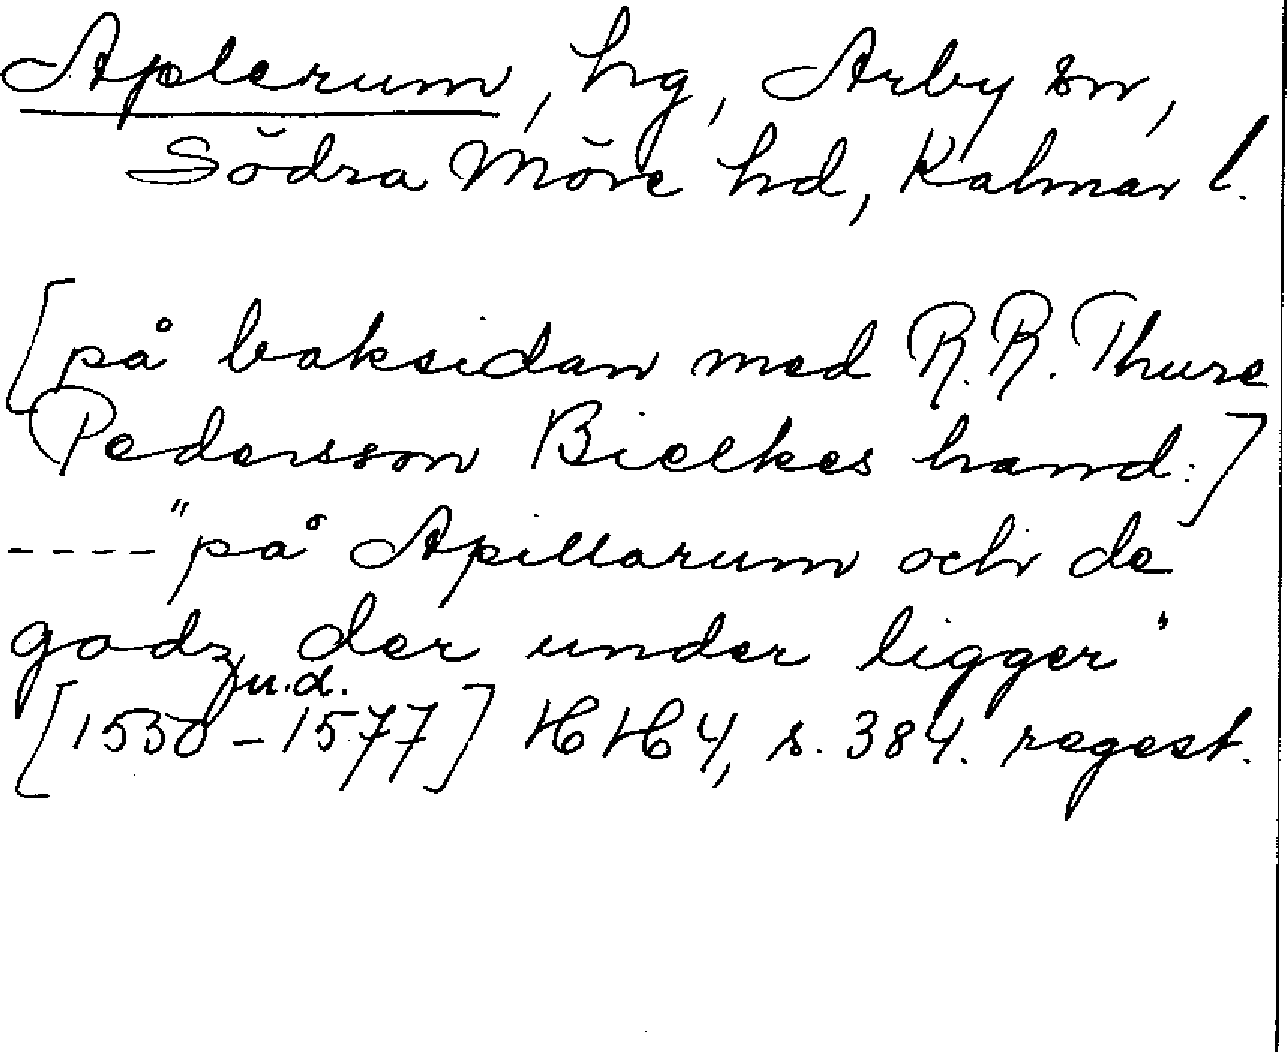 Aplerum, hg, Arby sn,
Södra Möre hd, Kalmar l.
[på baksidan med R.R. Thure
Pedersson Bielkes hand:]
----"på Apillarum och de
godz der under ligger"
u.d.
[1550-1577] HH4, s. 384. regest.